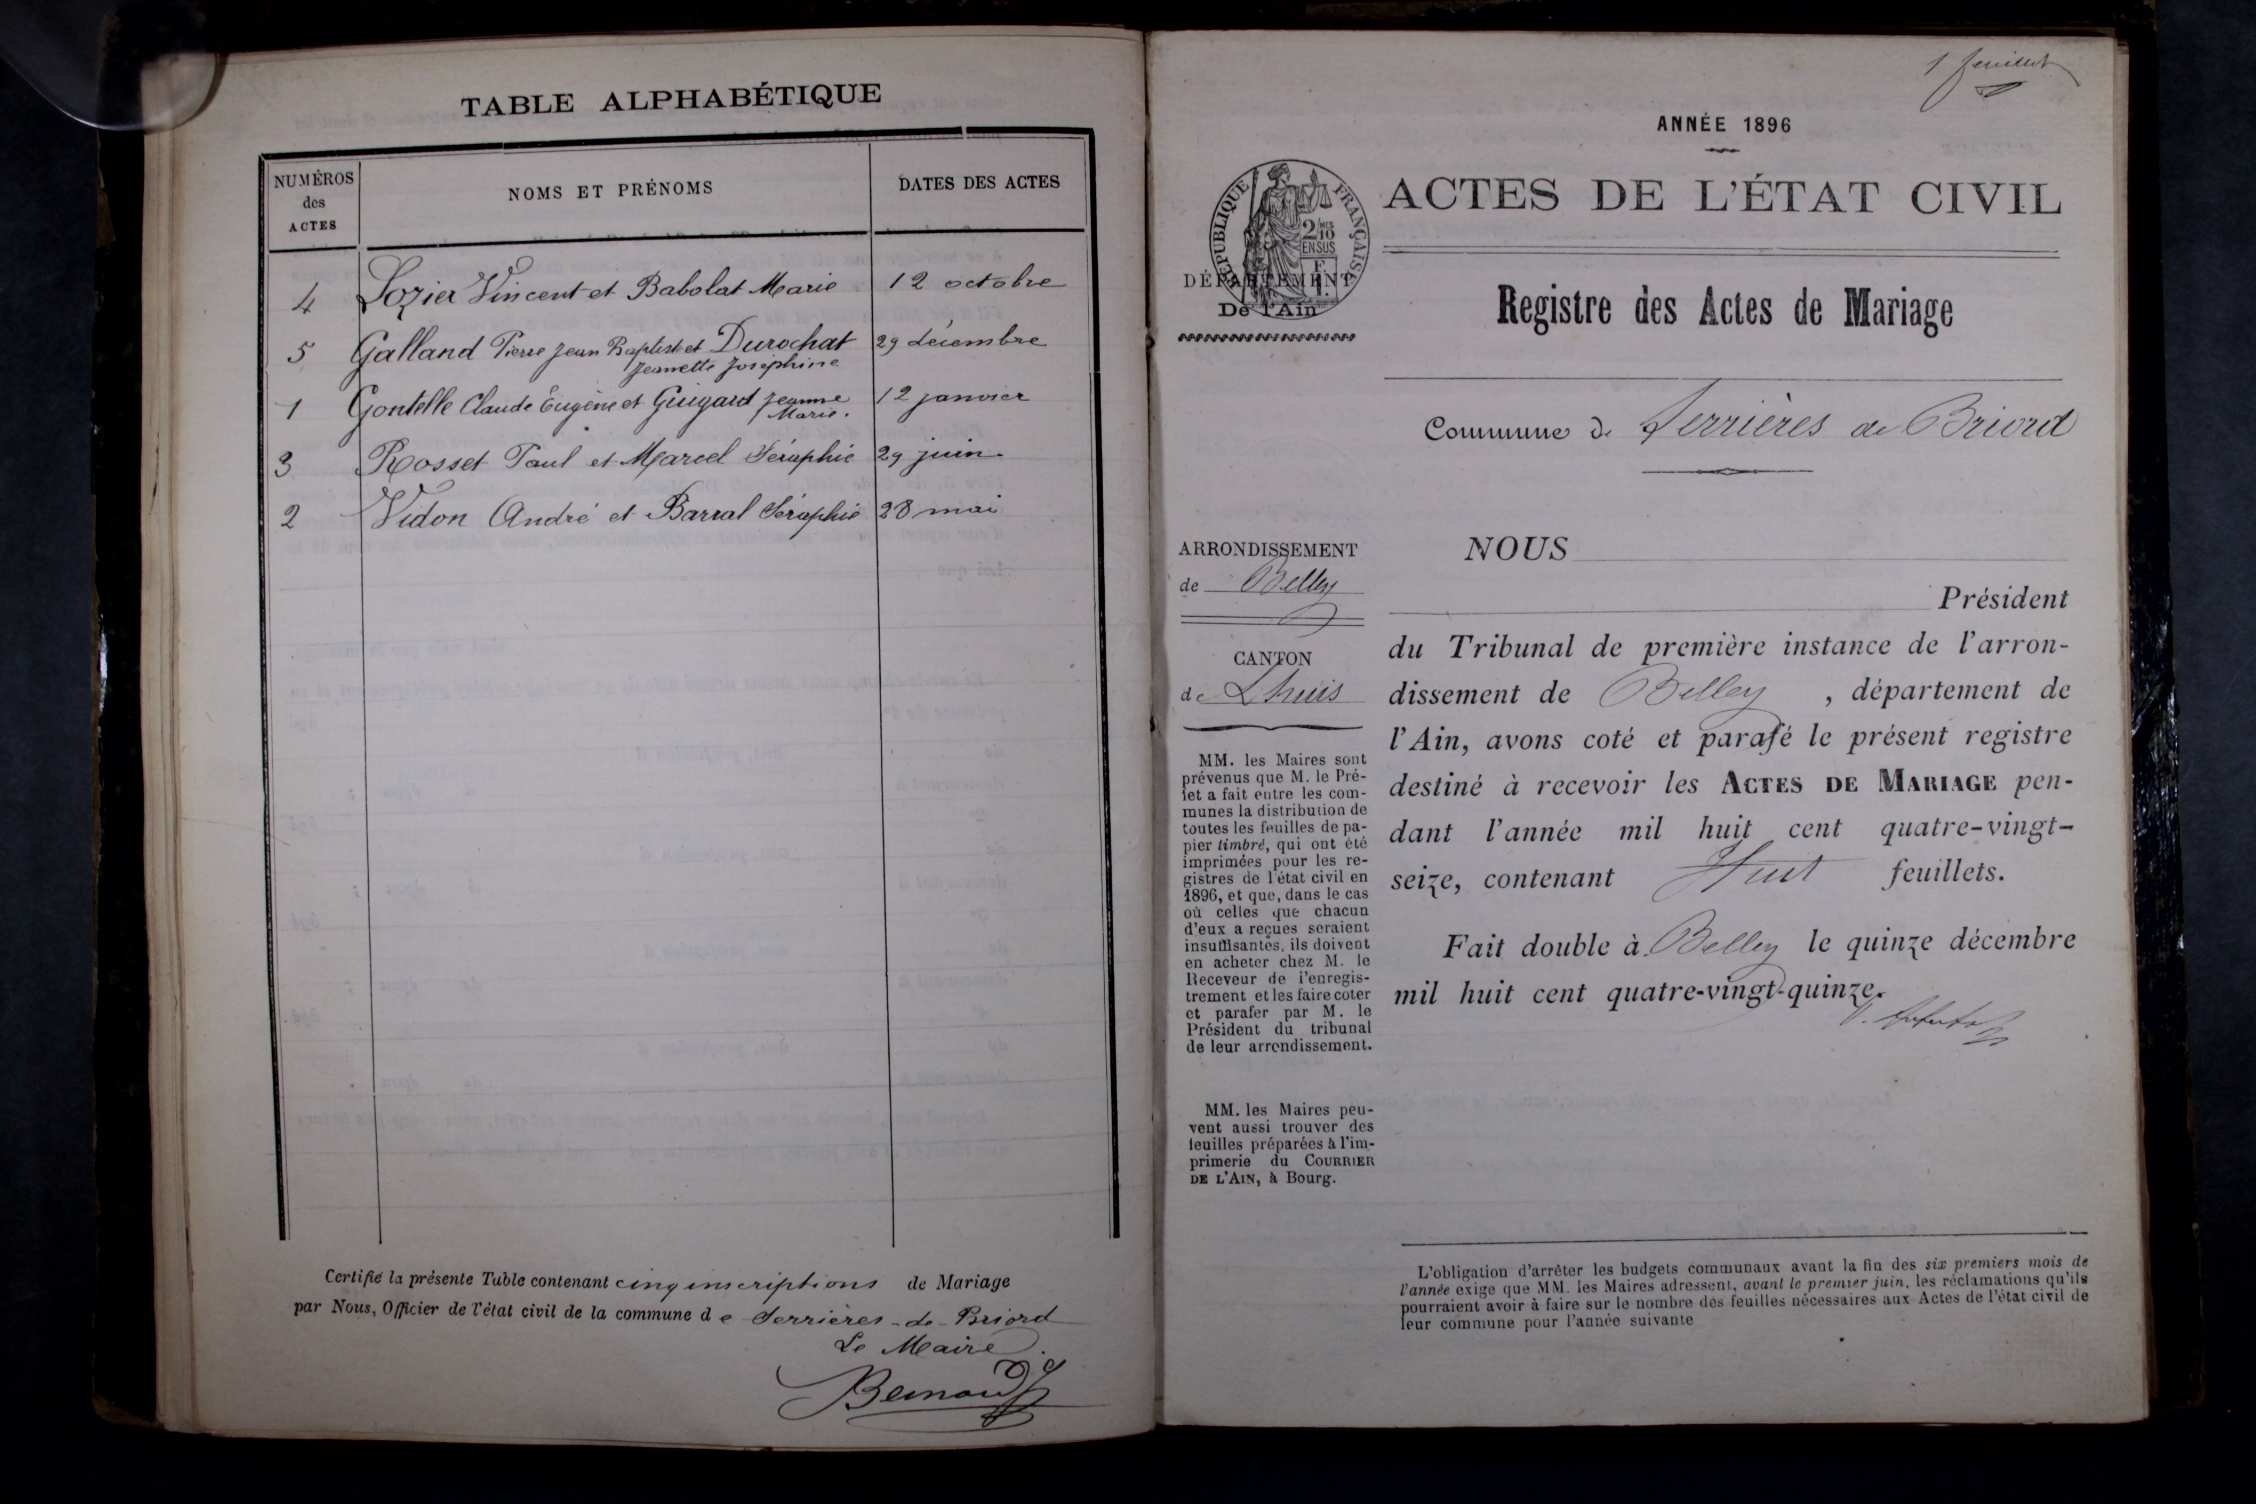 TABLE ALPHABÉTIQUE
NUMÉROS
des
ACTES
NOMS ET PRÉNOMS
DATES DES ACTES
4 Lozier Vincent et Babolat Marie 12 octobre
5 Galland Pierre Jean Baptiste et Durochat 29 décembre
Jeanette Joséphine
1 Gontelle Claude Eugène et Guigard Jeanne 12 janvier
Marie.
3 Rosset Paul et Marcel Séraphie 29 juin
2 Vidon André et Barral Séraphie 28 mai
Certifié la présente Table contenant cinq inscriptions de Mariage
par Nous, Officier de l'état civil de la commune de Serrières-de-Briord
Le Maire
Bernard
1 feuillet
ANNÉE 1896
RÉPUBLIQUE FRANÇAISE
2/10
EN SUS
DÉPARTEMENT
De l'Ain
ACTES DE L'ÉTAT CIVIL
Registre des Actes de Mariage
Commune de Serrières de Briord
ARRONDISSEMENT
de Belley
CANTON
de Lhuis
MM. les Maires sont
prévenus que M. le Pré-
fet a fait entre les com-
munes la distribution de
toutes les feuilles de pa-
pier timbré, qui ont été
imprimées pour les re-
gistres de l'état civil en
1896, et que, dans le cas
où celles que chacun
d'eux a reçues seraient
insuffisantes, ils doivent
en acheter chez M. le
Receveur de l'enregis-
trement et les faire coter
et parafer par M. le
Président du tribunal
de leur arrondissement.
MM. les Maires peu-
vent aussi trouver des
feuilles préparées à l'im-
primerie du COURRIER
DE L'AIN, à Bourg.
NOUS
Président
du Tribunal de première instance de l'arron-
dissement de Belley, département de
l'Ain, avons coté et parafé le présent registre
destiné à recevoir les ACTES DE MARIAGE pen-
dant l'année mil huit cent quatre-vingt-
seize, contenant Huit feuillets.
Fait double à Belley le quinze décembre
mil huit cent quatre-vingt-quinze.
L'obligation d'arrêter les budgets communaux avant la fin des six premiers mois de
l'année exige que MM. les Maires adressent, avant le premier juin, les réclamations qu'ils
pourraient avoir à faire sur le nombre des feuilles nécessaires aux Actes de l'état civil de
leur commune pour l'année suivante